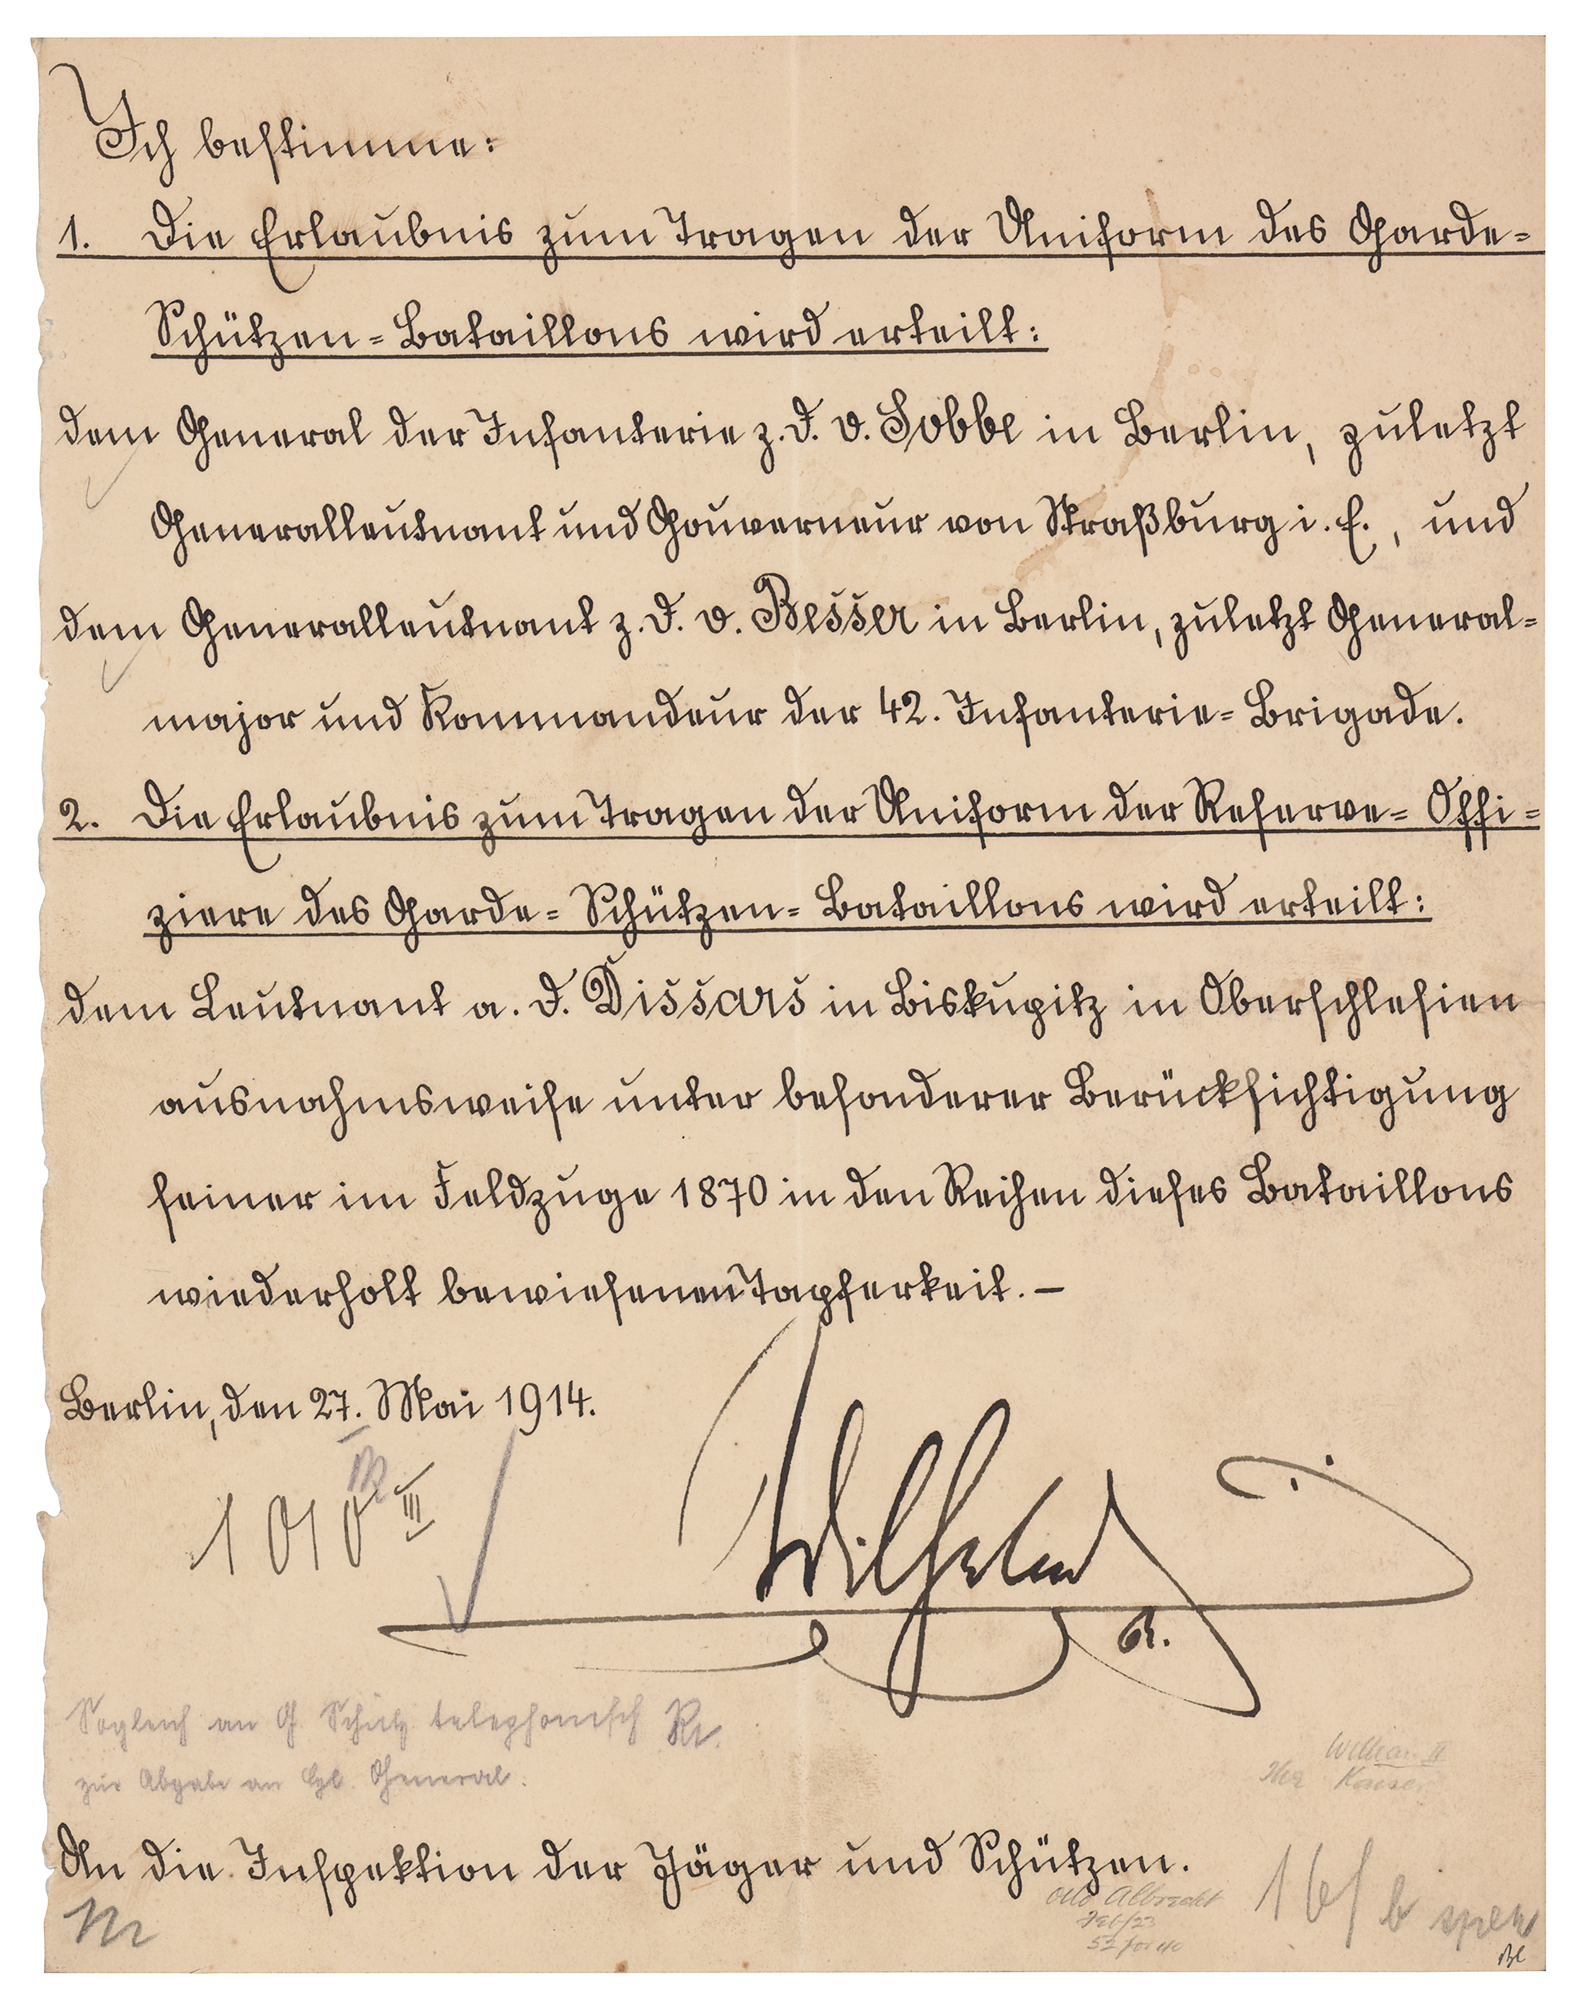 Ich bestimme:
1. Die Erlaubnis zum Tragen der Uniform des Garde-
Schützen-Bataillons wird erteilt:
dem General der Infanterie z. D. v. Sobbe in Berlin, zuletzt
Generalleutnant und Gouverneur von Straßburg i. E., und
dem Generalleutnant z. D. v. Besser in Berlin, zuletzt General-
major und Kommandeur der 42. Infanterie-Brigade.
2. Die Erlaubnis zum Tragen der Uniform der Reserve-Offi-
ziere des Garde-Schützen-Bataillons wird erteilt:
dem Leutnant a. D. Dissars in Biskupitz in Oberschlesien
ausnahmsweise unter besonderer Berücksichtigung
seiner im Feldzuge 1870 in den Reihen dieses Bataillons
wiederholt bewiesenen Tapferkeit. —
Berlin, den 27. Mai 1914.
III
Wilhelm
R.
Sogleich an G Schütz telephonisch
zur Abgabe an General.
William II
Kaiser
An die Inspektion der Jäger und Schützen.
Otto Albrecht